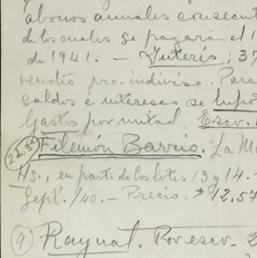 abonos anuales consecut
de los cuales se pagará el 1
de 1941. — Interés; 37
vendió pro-indiviso. Para
saldos e intereses se hipot
Gastos por mitad. Escr.
Filemón Barrio. La M
Hs., en parte de los lotes 13 y 14.-
Sept./40.- Precio, $12,57
9 Raynat. Por escr. 2